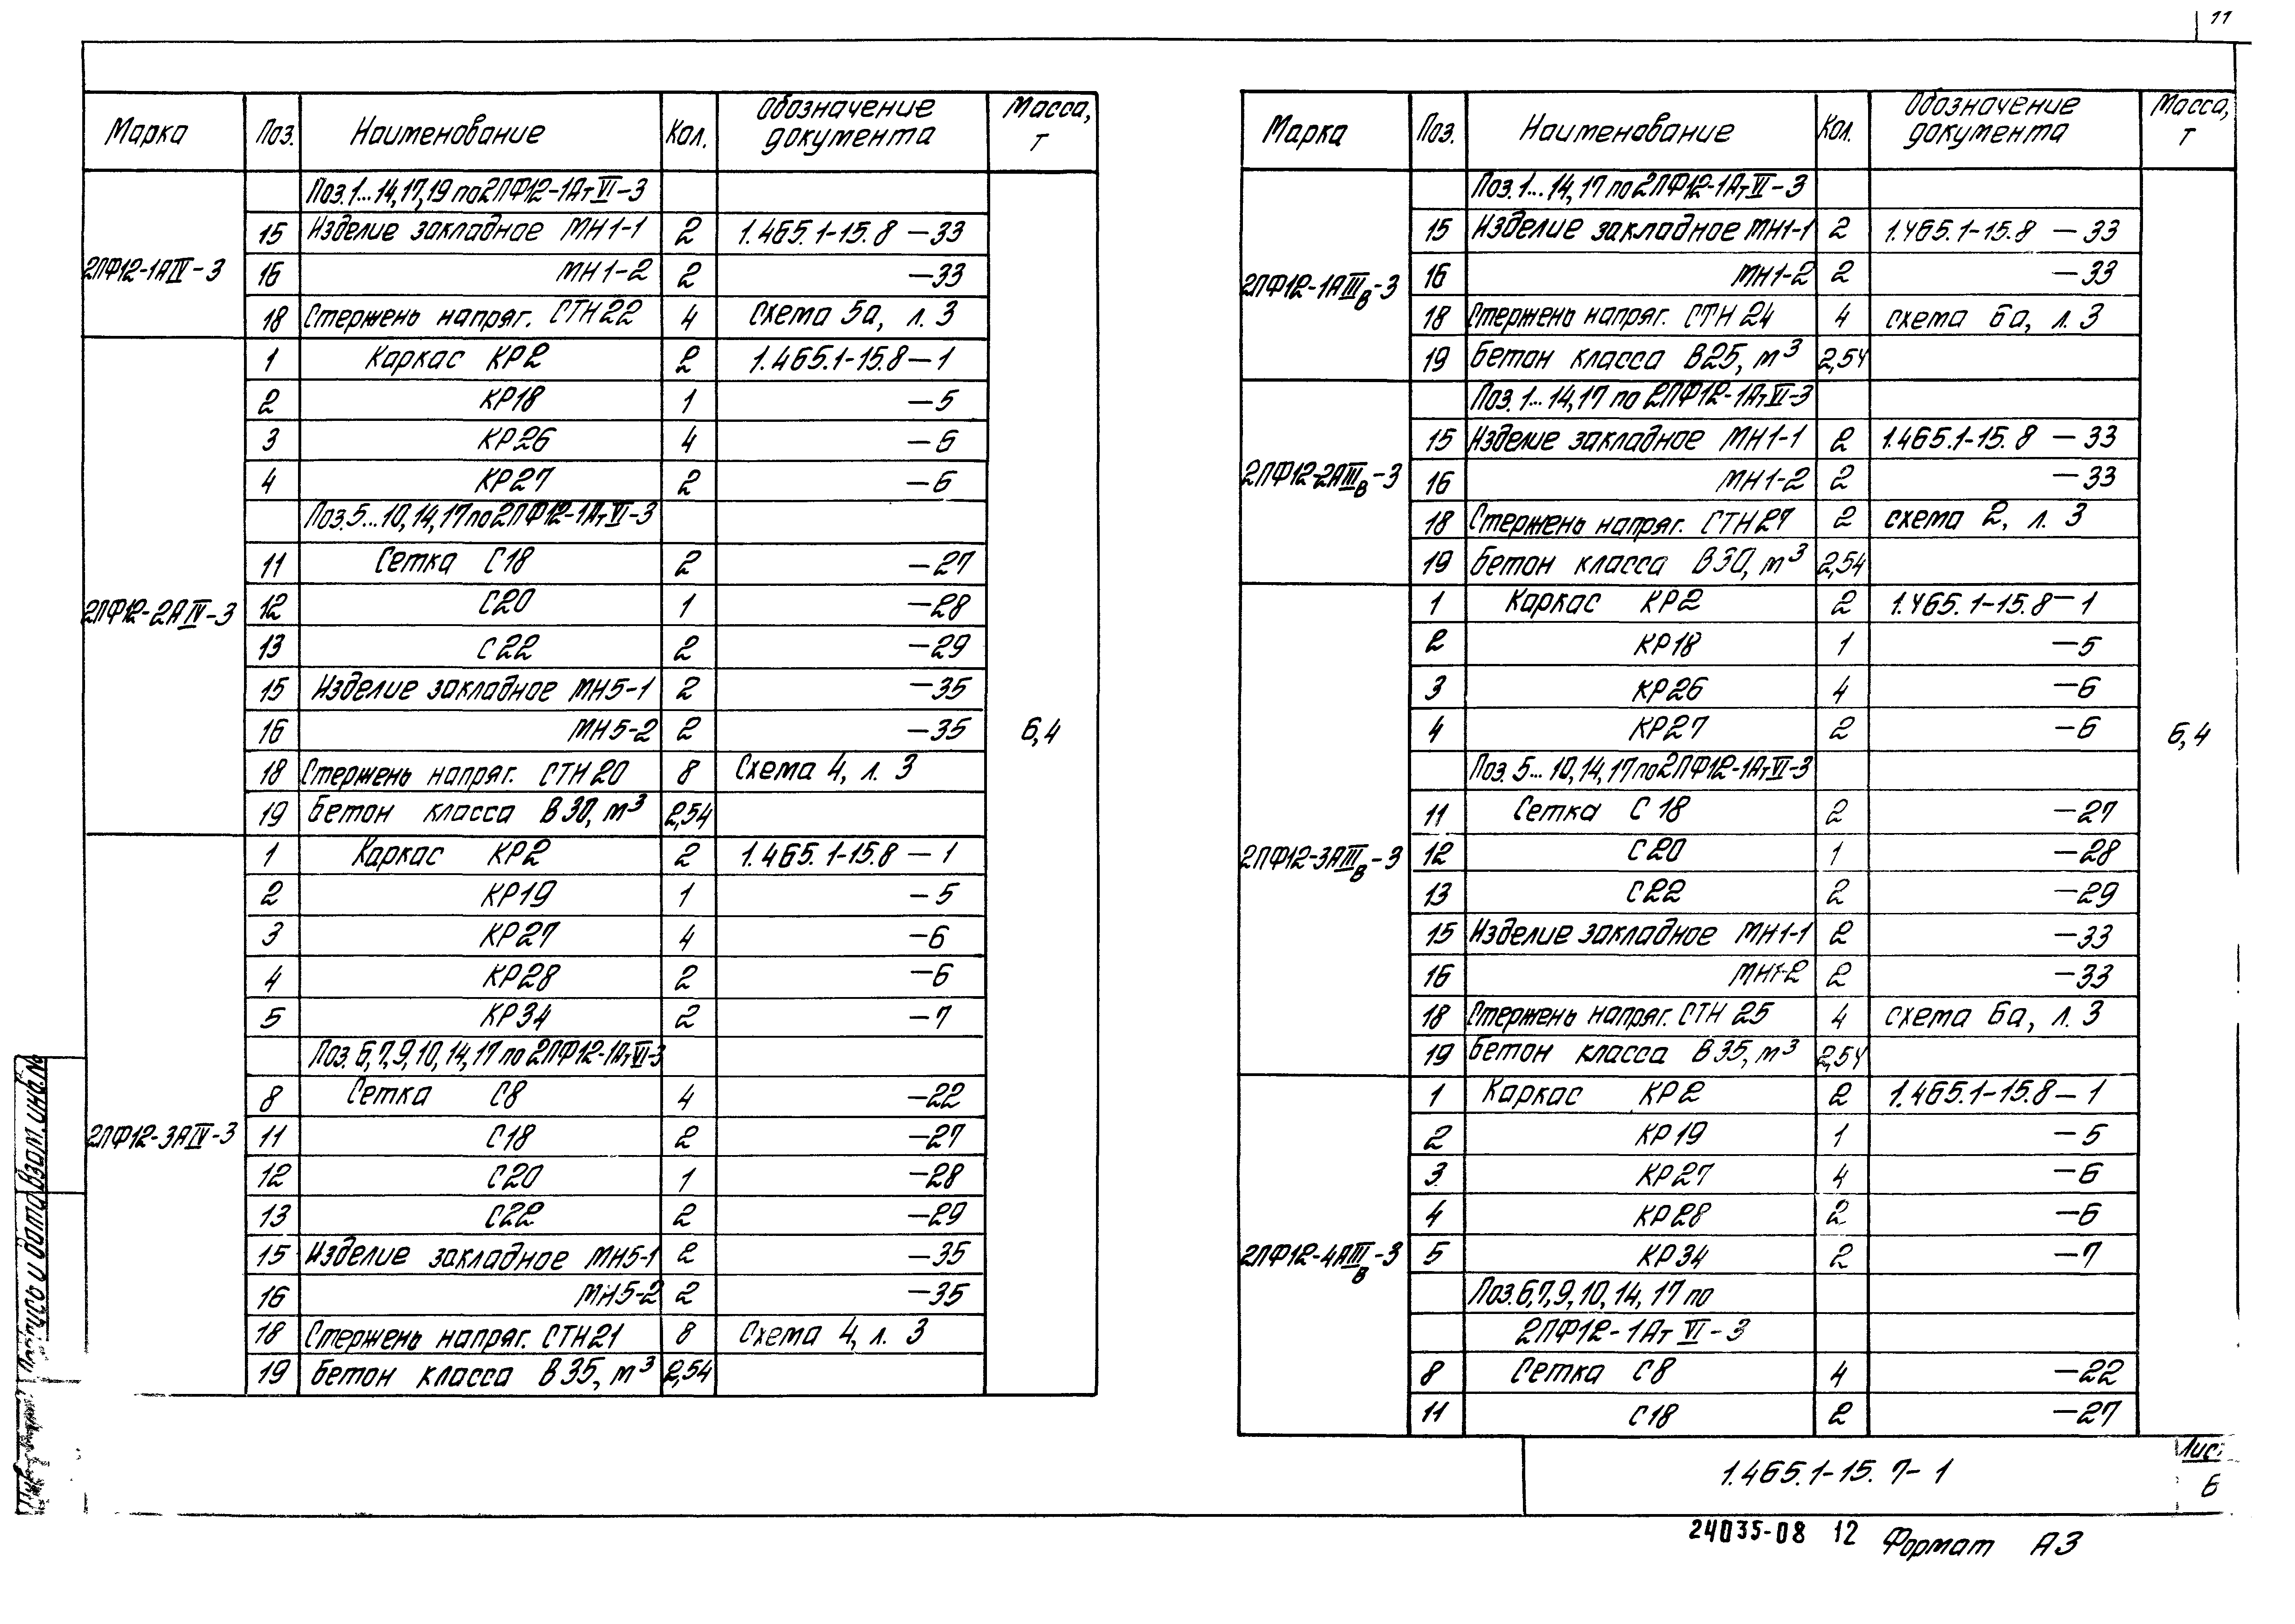 11
Марка Поз. Наименование Кол. Обозначение документа Масса, т
2ПФ12-1АIV-3
Поз.1...14,17,19 по 2ПФ12-1АтVI-3
15 Изделие закладное МН1-1 2 1.465.1-15.8 -33
16 МН1-2 2 -33
18 Стержень напряг. СТН22 4 Схема 5а, л. 3
2ПФ12-2АIV-3
1 Каркас КР2 2 1.465.1-15.8-1
2 КР18 1 -5
3 КР26 4 -6
4 КР27 2 -6
Поз.5...10,14,17 по 2ПФ12-1АтVI-3
11 Сетка С18 2 -27
12 С20 1 -28
13 С22 2 -29
15 Изделие закладное МН5-1 2 -35
16 МН5-2 2 -35
18 Стержень напряг. СТН20 8 Схема 4, л. 3
19 Бетон класса В30, м³ 2,54
6,4
2ПФ12-3АIV-3
1 Каркас КР2 2 1.465.1-15.8-1
2 КР19 1 -5
3 КР27 4 -6
4 КР28 2 -6
5 КР34 2 -7
Поз. 6,7,9,10,14,17 по 2ПФ12-1АтVI-3
8 Сетка С8 4 -22
11 С18 2 -27
12 С20 1 -28
13 С22 2 -29
15 Изделие закладное МН5-1 2 -35
16 МН5-2 2 -35
18 Стержень напряг. СТН21 8 Схема 4, л. 3
19 Бетон класса В35, м³ 2,54
Марка Поз. Наименование Кол. Обозначение документа Масса, т
2ПФ12-1АIIIв-3
Поз.1...14,17 по 2ПФ12-1АтVI-3
15 Изделие закладное МН1-1 2 1.465.1-15.8 -33
16 МН1-2 2 -33
18 Стержень напряг. СТН24 4 схема 6а, л. 3
19 Бетон класса В25, м³ 2,54
2ПФ12-2АIIIв-3
Поз.1...14,17 по 2ПФ12-1АтVI-3
15 Изделие закладное МН1-1 2 1.465.1-15.8 -33
16 МН1-2 2 -33
18 Стержень напряг. СТН27 2 схема 2, л. 3
19 Бетон класса В30, м³ 2,54
2ПФ12-3АIIIв-3
1 Каркас КР2 2 1.465.1-15.8-1
2 КР18 1 -5
3 КР26 4 -6
4 КР27 2 -6
Поз. 5...10,14,17 по 2ПФ12-1АтVI-3
11 Сетка С18 2 -27
12 С20 1 -28
13 С22 2 -29
15 Изделие закладное МН1-1 2 -33
16 МН1-2 2 -33
18 Стержень напряг. СТН25 4 схема 6а, л. 3
19 Бетон класса В35, м³ 2,54
6,4
2ПФ12-4АIIIв-3
1 Каркас КР2 2 1.465.1-15.8-1
2 КР19 1 -5
3 КР27 4 -6
4 КР28 2 -6
5 КР34 2 -7
Поз.6,7,9,10,14,17 по
2ПФ12-1АтVI-3
8 Сетка С8 4 -22
11 С18 2 -27
1.465.1-15.7-1
Лис
6
24035-08 12 Формат А3
Подпись и дата Взам.инв.№